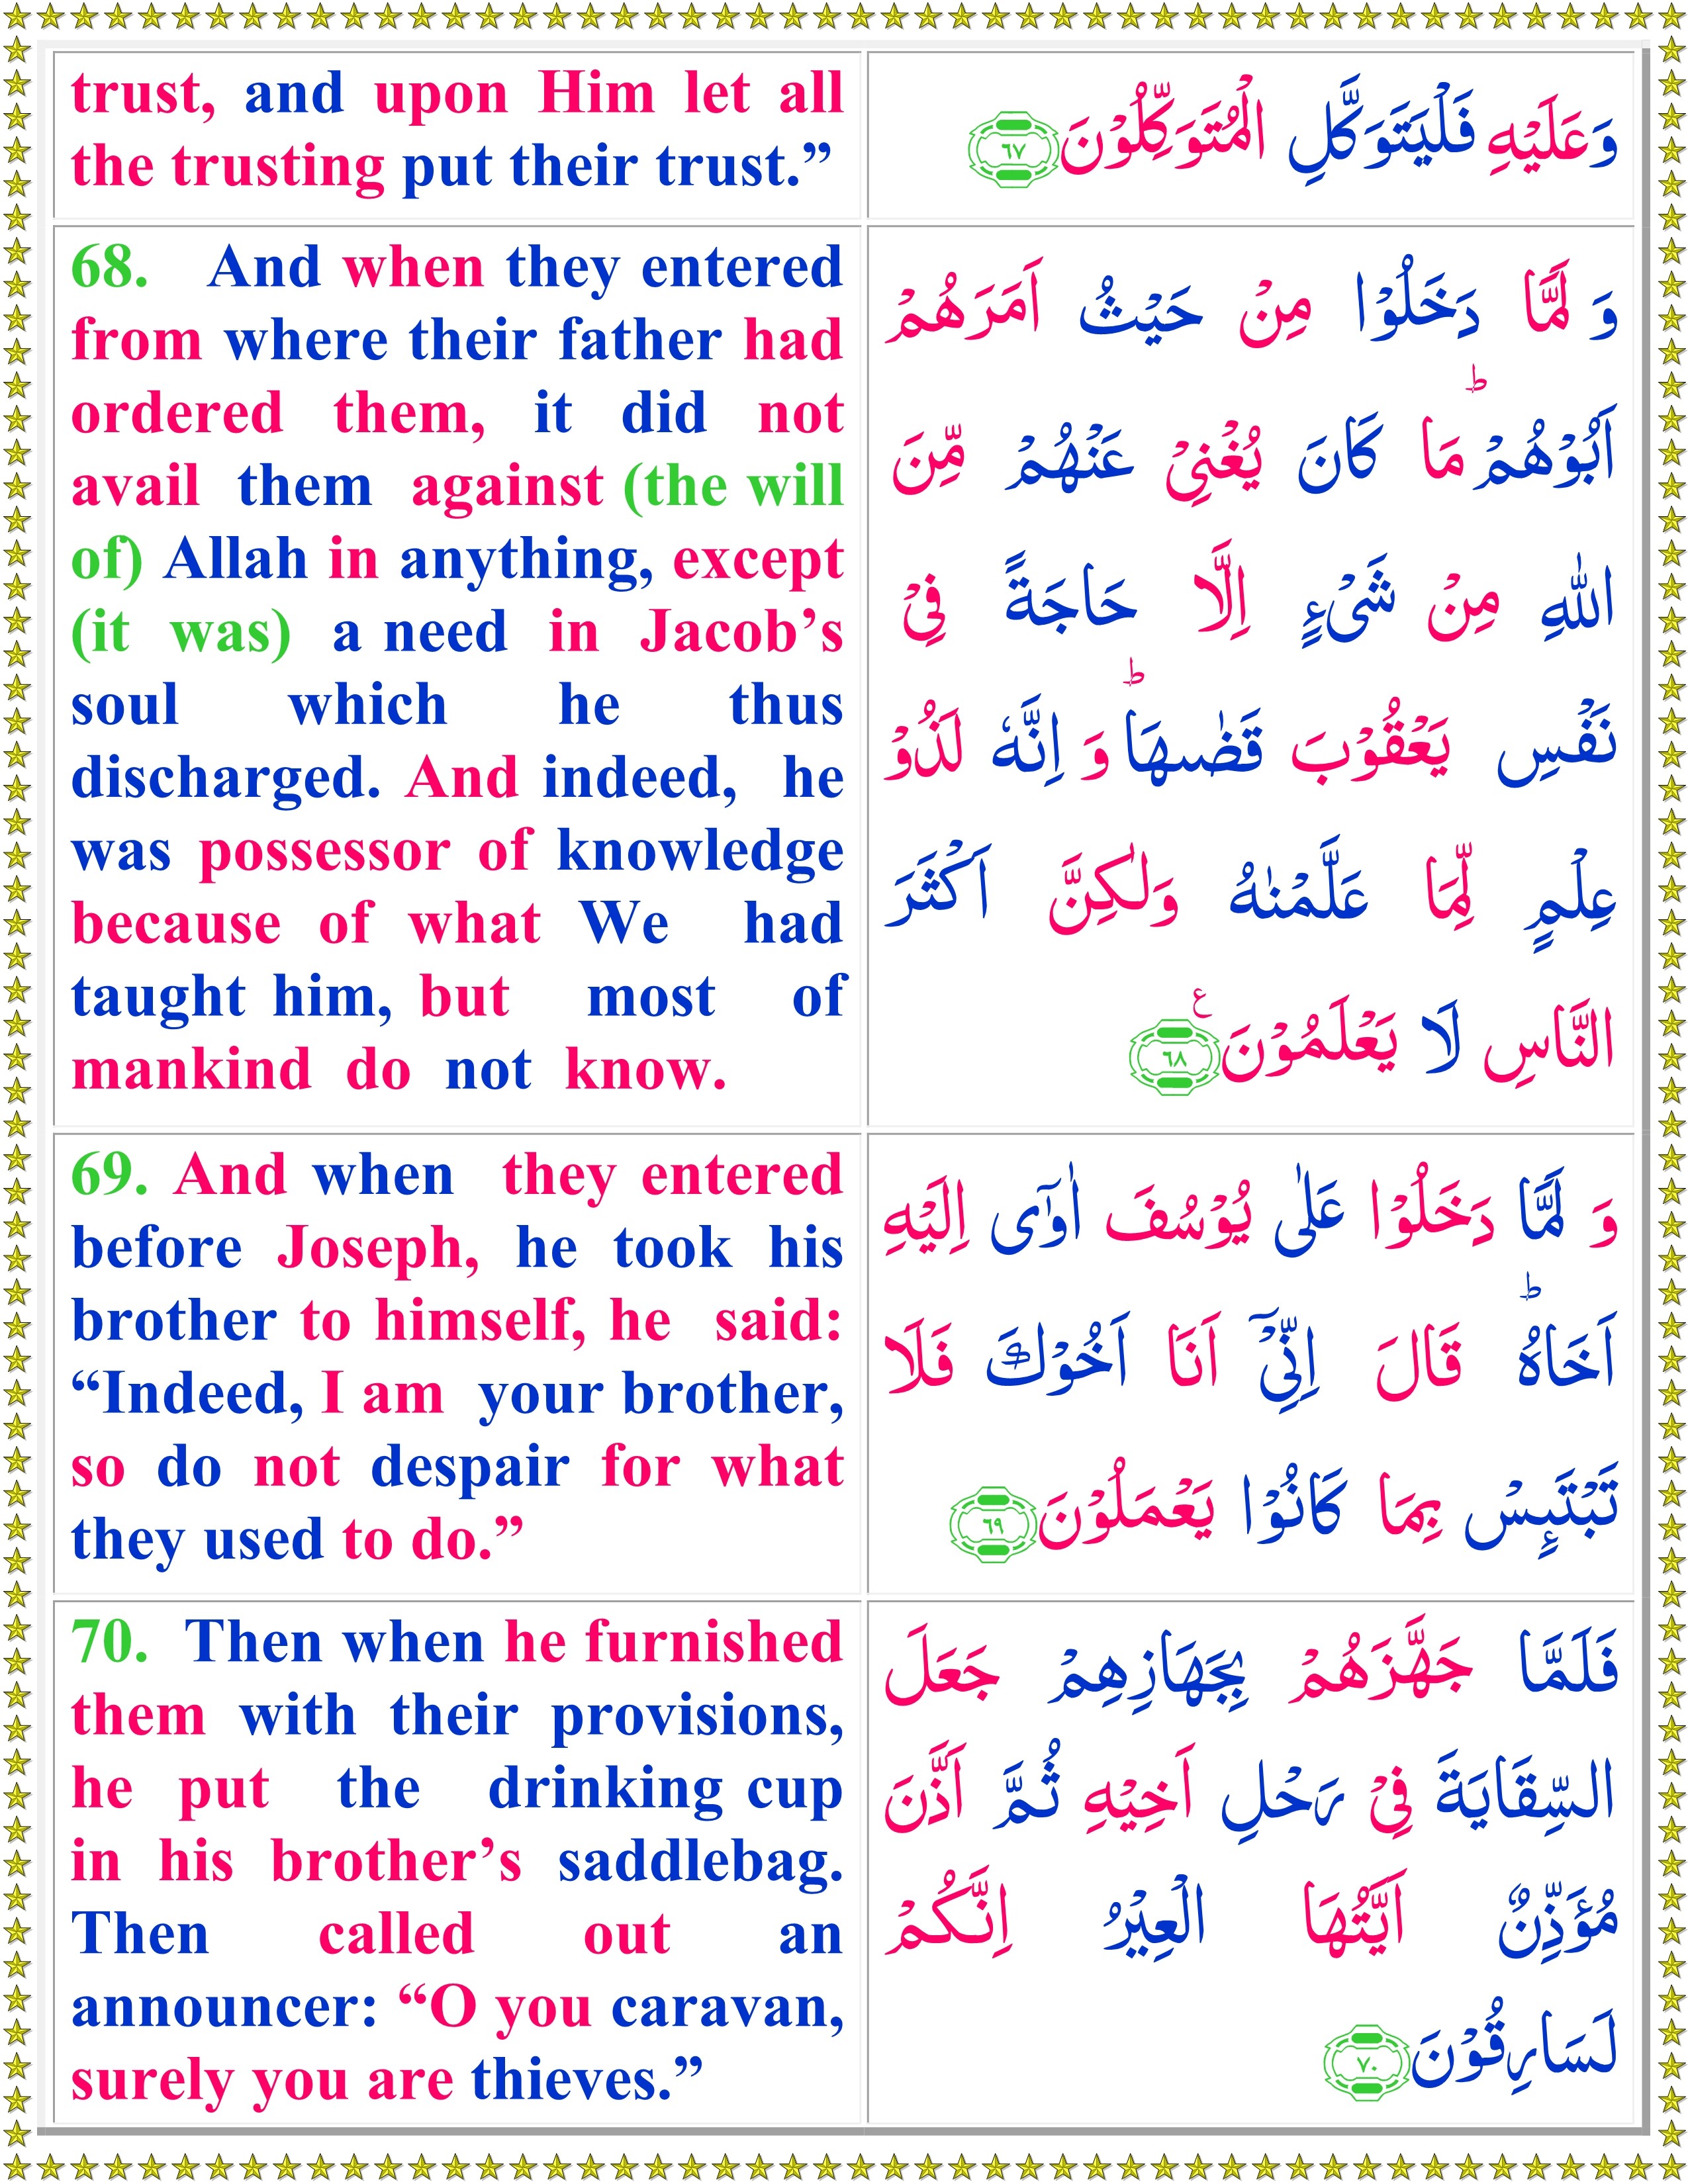 trust, and upon Him let all
the trusting put their trust.”
وَعَلَيْهِ فَلْيَتَوَكَّلِ الْمُتَوَكِّلُوْنَ ٦٧
68. And when they entered
from where their father had
ordered them, it did not
avail them against (the will
of) Allah in anything, except
(it was) a need in Jacob’s
soul which he thus
discharged. And indeed, he
was possessor of knowledge
because of what We had
taught him, but most of
mankind do not know.
وَ لَمَّا دَخَلُوْا مِنْ حَيْثُ اَمَرَهُمْ
اَبُوْهُمْ ؕ مَا كَانَ يُغْنِىْ عَنْهُمْ مِّنَ
اللّٰهِ مِنْ شَىْءٍ اِلَّا حَاجَةً فِىْ
نَفْسِ يَعْقُوْبَ قَضٰٮهَا ؕ وَ اِنَّهٗ لَذُوْ
عِلْمٍ لِّمَا عَلَّمْنٰهُ وَلٰكِنَّ اَكْثَرَ
النَّاسِ لَا يَعْلَمُوْنَ ع ٦٨
69. And when they entered
before Joseph, he took his
brother to himself, he said:
“Indeed, I am your brother,
so do not despair for what
they used to do.”
وَ لَمَّا دَخَلُوْا عَلٰى يُوْسُفَ اٰوٰٓى اِلَيْهِ
اَخَاهُ ؕ قَالَ اِنِّىْۤ اَنَا اَخُوْكَ فَلَا
تَبْتَٮِٕسْ بِمَا كَانُوْا يَعْمَلُوْنَ ٦٩
70. Then when he furnished
them with their provisions,
he put the drinking cup
in his brother’s saddlebag.
Then called out an
announcer: “O you caravan,
surely you are thieves.”
فَلَمَّا جَهَّزَهُمْ بِجَهَازِهِمْ جَعَلَ
السِّقَايَةَ فِىْ رَحْلِ اَخِيْهِ ثُمَّ اَذَّنَ
مُؤَذِّنٌ اَيَّتُهَا الْعِيْرُ اِنَّكُمْ
لَسَارِقُوْنَ ٧٠